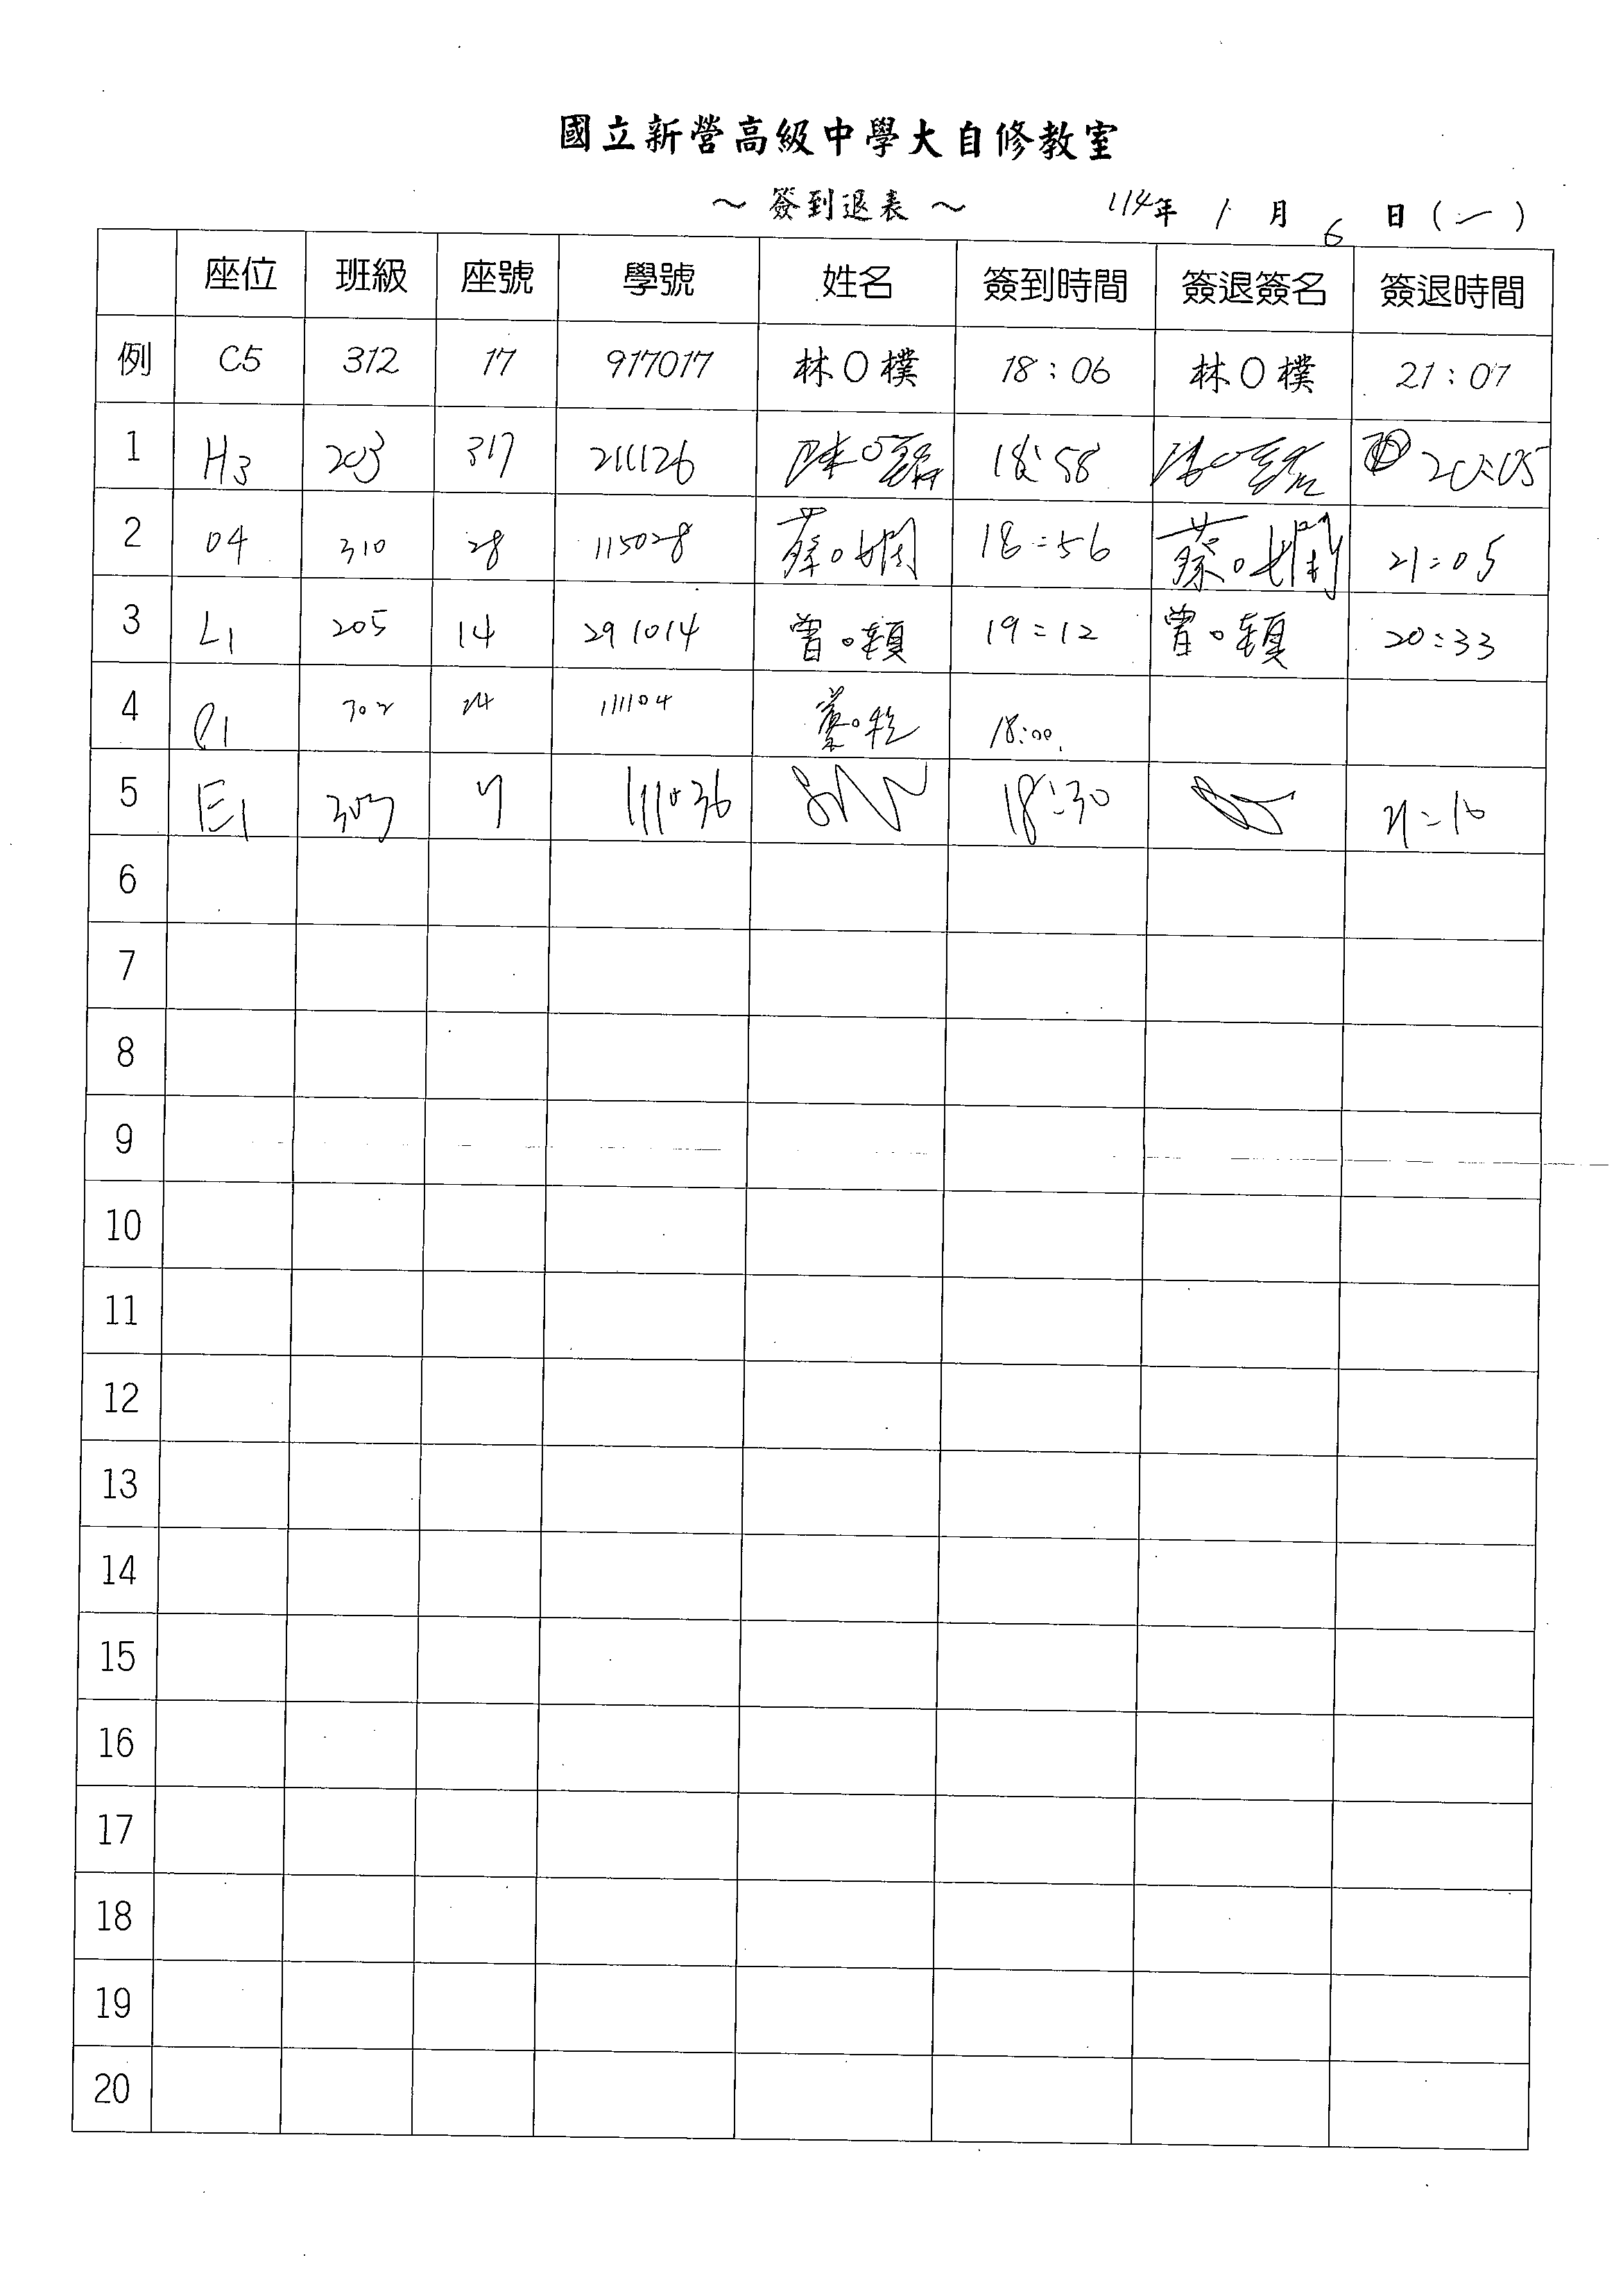 國立新營高級中學大自修教室
～ 簽到退表 ～ 114年 1 月 6 日 (一)
座位 班級 座號 學號 姓名 簽到時間 簽退簽名 簽退時間
例 C5 312 17 917017 林O樸 18:06 林O樸 21:07
1 H3 203 317 211126 陳O 18:58 20:05
2 04 310 28 115028 蔡O嫻 18:56 蔡O嫻 21:05
3 L1 205 14 291014 曾O穎 19:12 曾O穎 20:33
4 302 24 111104 18:00
5 E1 303 111036 18:30 21:10
6
7
8
9
10
11
12
13
14
15
16
17
18
19
20